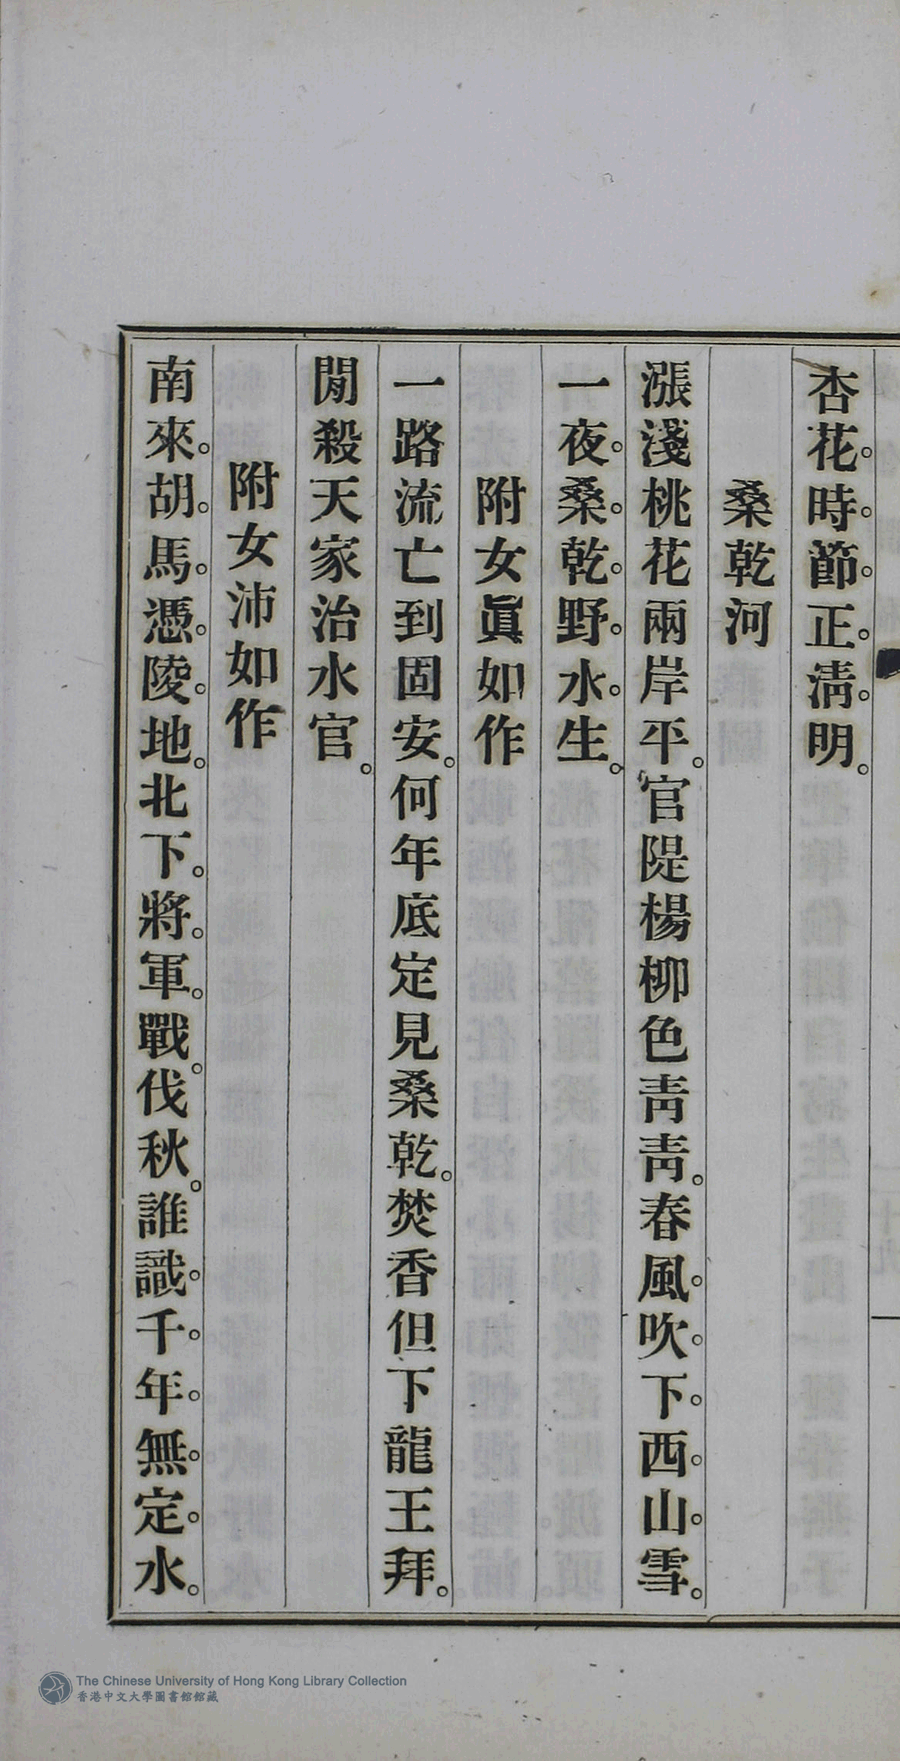 杏花。時。節。正。淸。明。
桑乾河
漲淺桃花兩岸平。官隄楊柳色靑靑。春風。吹。下。西。山。雪。
一夜。桑。乾。野。水。生。
附女眞如作
一路流亡到固安。何年底定見桑乾。焚香但下龍王拜。
閒殺天家治水官。
附女沛如作
南來。胡。馬。憑。陵。地。北下。將。軍。戰。伐秋。誰識。千。年。無。定。水。
The Chinese University of Hong Kong Library Collection
香港中文大學圖書館館藏